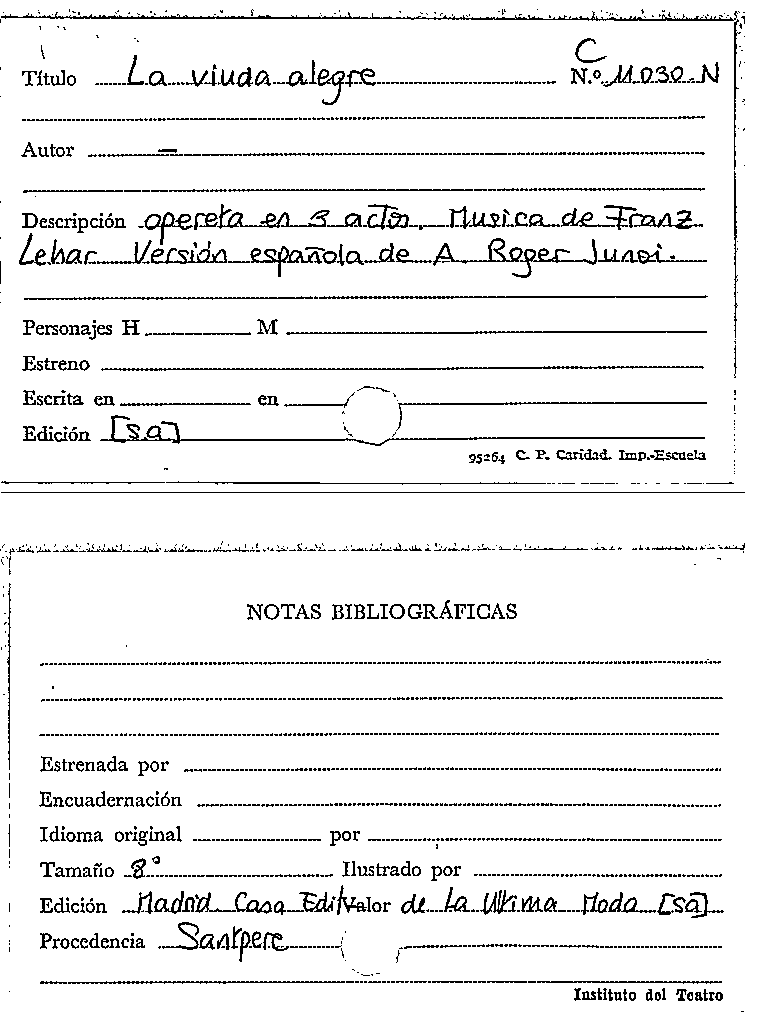 C
Título La viuda alegre N.º 11030-N
Autor —
Descripción opereta en 3 actos. Musica de Franz
Lehar. Versión española de A. Roger Junoi.
Personajes H M
Estreno
Escrita en en
Edición [sa]
95264 C. P. Caridad. Imp.-Escuela
NOTAS BIBLIOGRÁFICAS
Estrenada por
Encuadernación
Idioma original por
Tamaño 8º Ilustrado por
Edición Madrid Casa de La Ultima Moda [sa]
Procedencia Santpere
Instituto del Teatro